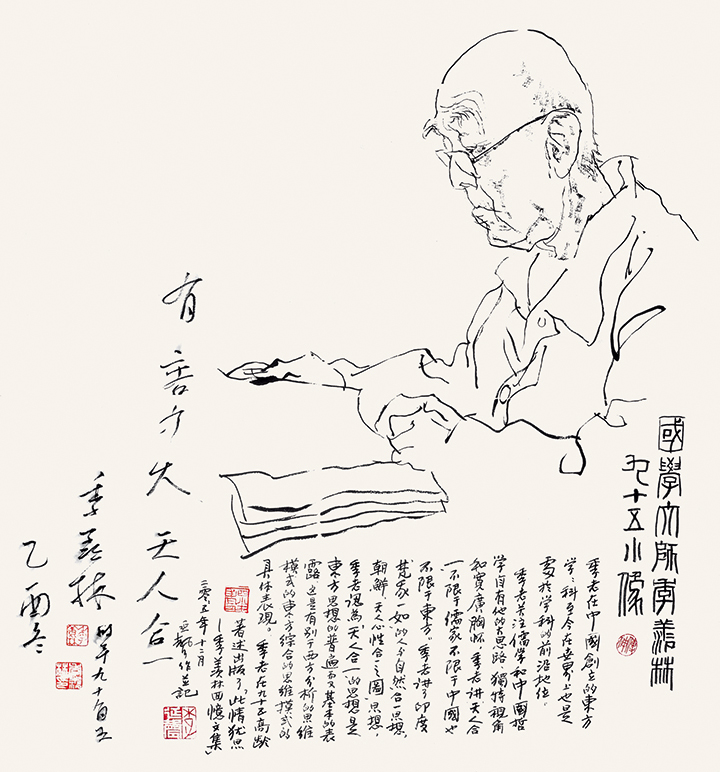 國學大師季羨林
九十五小像
季老在中國創立的東方
學:科至今在世界上也是
處於学科的前沿地位。
季老关注儒学和中國哲
学自有他的思路独特視角
和宽廣胸怀。季老讲天人合
一不限于儒家不限于中國也
不限于東方。季老讲了印度
梵我一如的人与自然合一思想,
朝鮮"天人性合一之圖"思想。
季老认为天人合一的思想是
東方思想的普遍而又基本的表
露 这是有别于西方分析的思维
模式的東方綜合的思维模式的
具体表现。季老在九十五高龄
著述出版了《此情犹思
—季羡林回憶文集》
二零零五年十二月
作並記
有容乃大 天人合一
季羡林 时年九十有五
乙酉冬